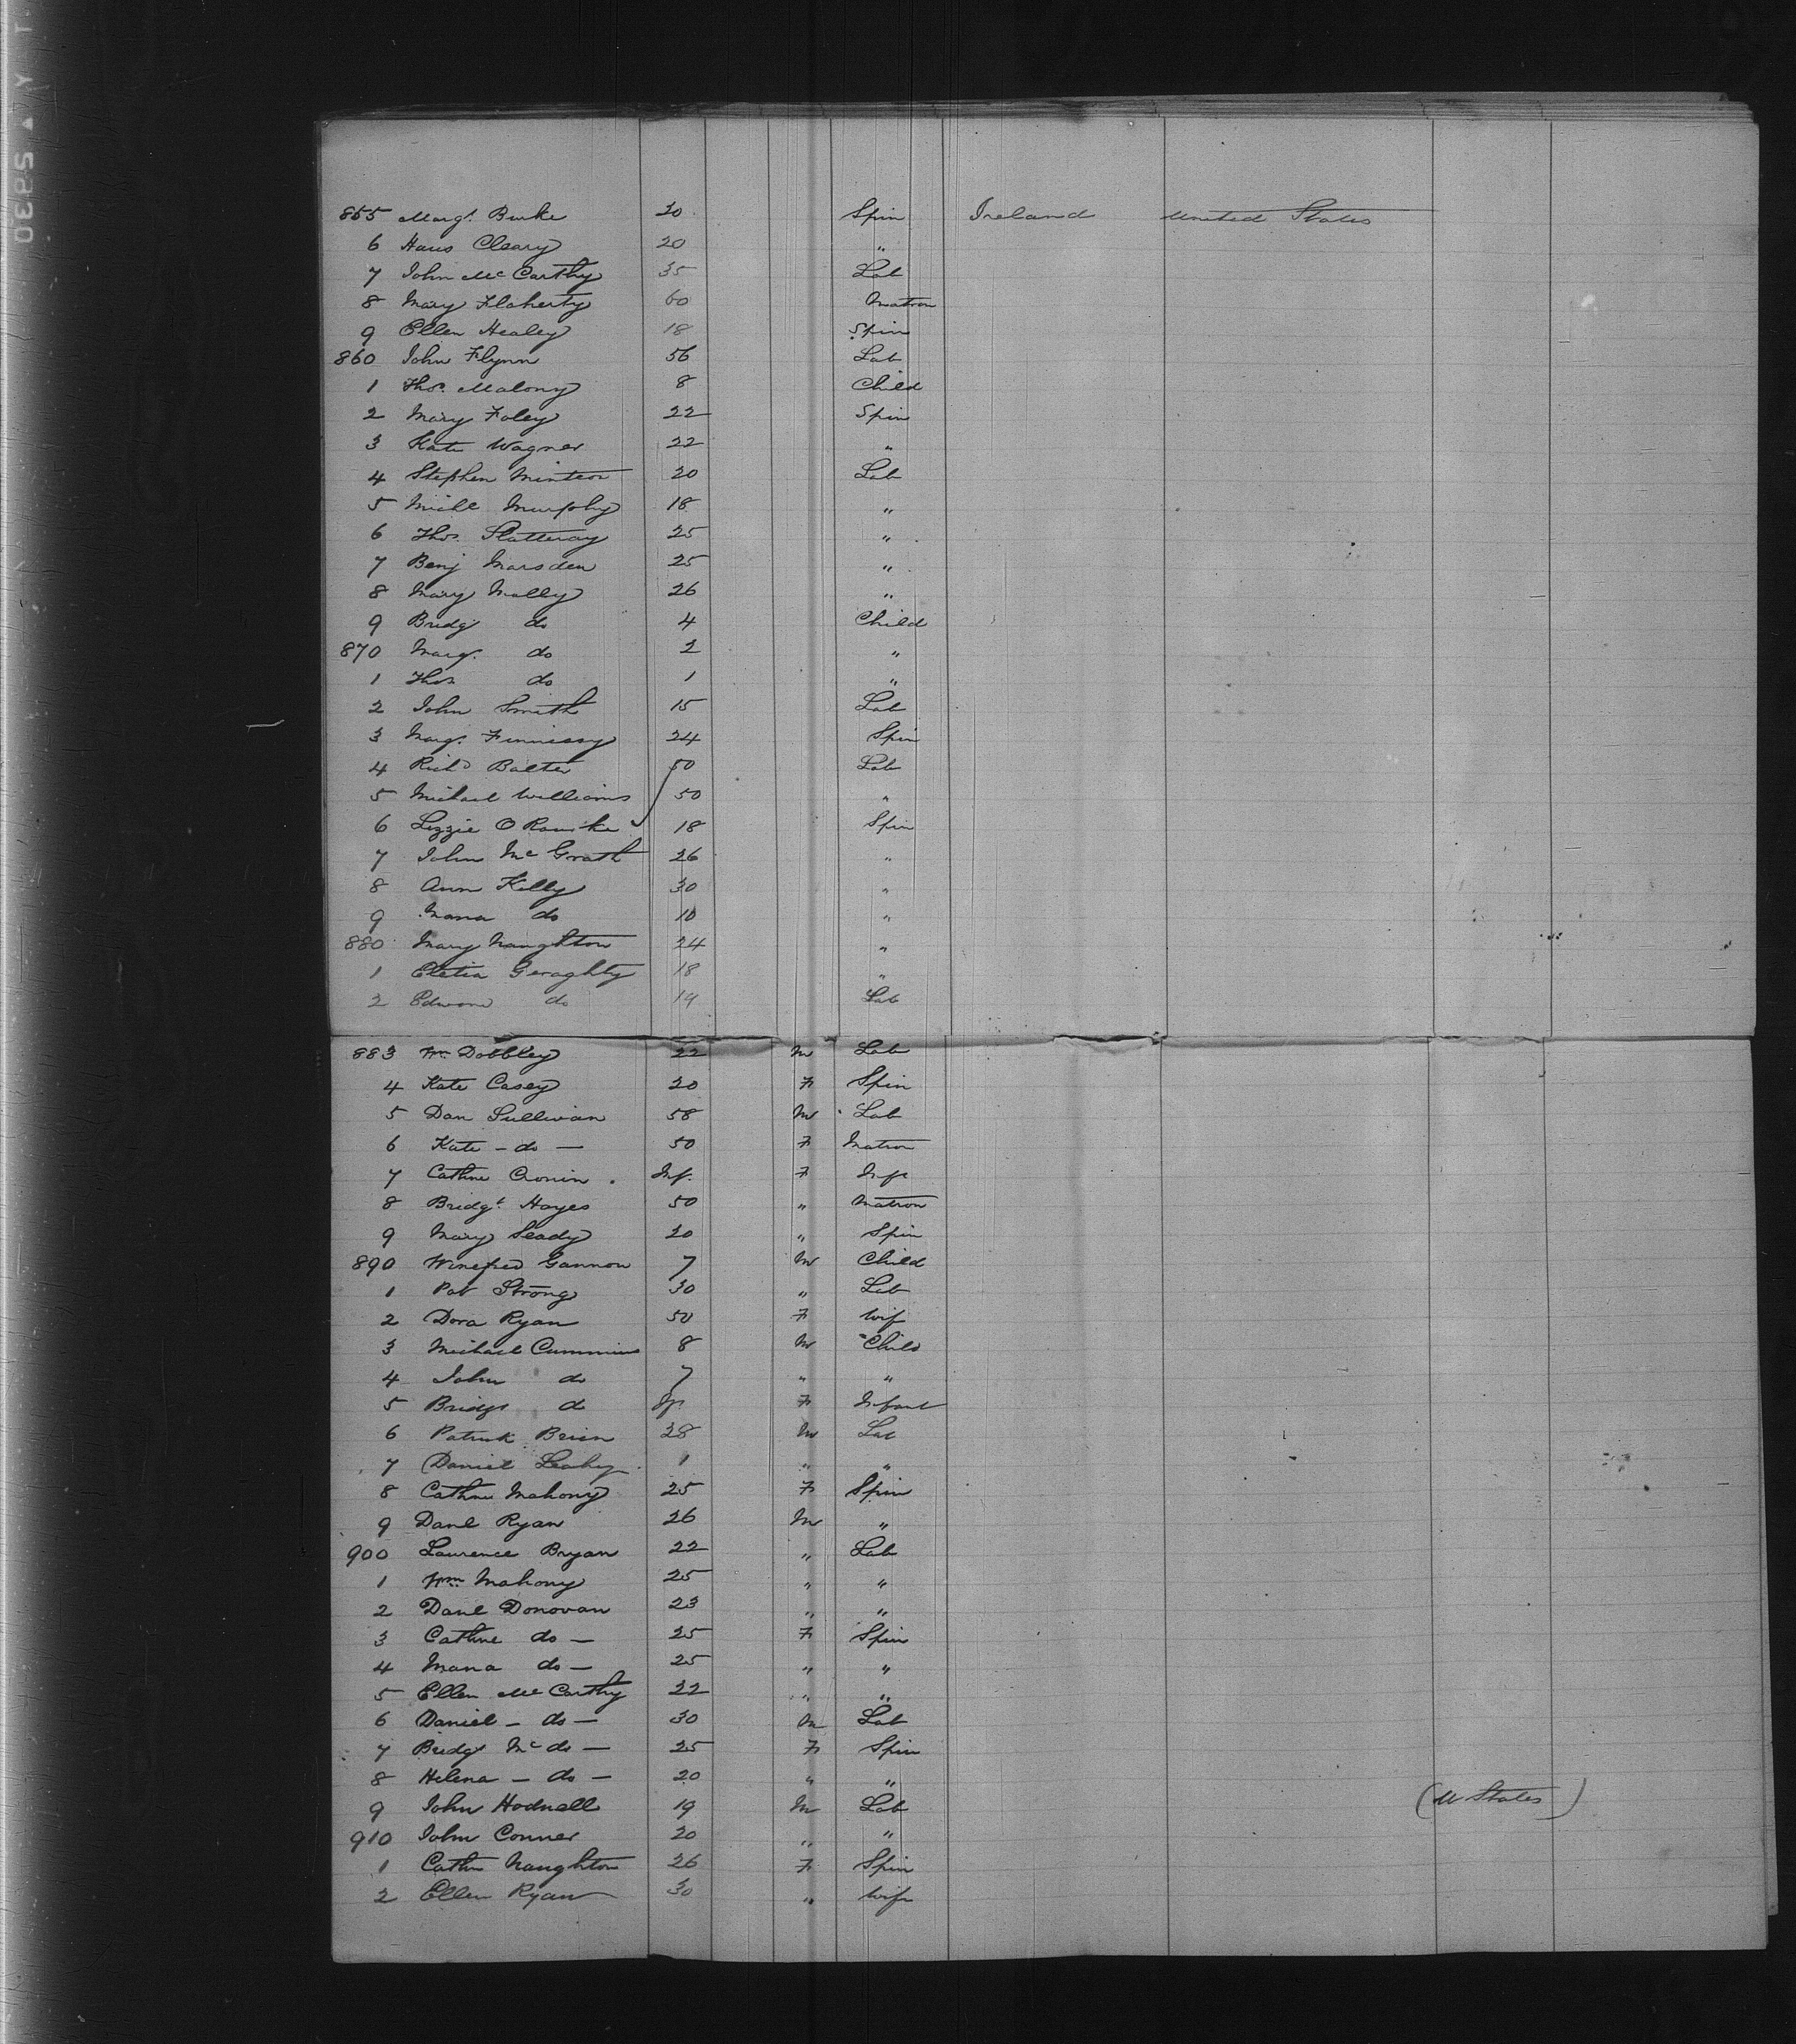 855 Margt. Burke 20 Spin Ireland United States
6 Hans Cleary 20 "
7 John McCarthy 35 Lab
8 Mary Flaherty 60 Matron
9 Ellen Healey 18 Spin
860 John Flynn 56 Lab
1 Thos. Malony 8 Child
2 Mary Foley 22 Spin
3 Kate Wagner 22 "
4 Stephen 20 Lab
5 Michl Murphy 18 "
6 Thos. Slatteray 25 "
7 Benj Marsden 25 "
8 Mary Molly 26 "
9 Bridg do 4 Child
870 Marg. do 2 "
1 Thos do 1 "
2 John Smith 15 Lab
3 Marg. Finnissy 24 Spin
4 Richd Balter 50 Lab
5 Michael Williams 50 "
6 Lizzie O Rourke 18 Spin
7 John McGrath 26 "
8 Ann Killy 30 "
9 Maria do 10 "
880 Mary Naughton 24 "
1 Eletia Geraghty 18 "
2 Edward do 14 Lab
883 Wm Dobbley 22 M Lab
4 Kate Casey 20 F Spin
5 Dan Sullivan 58 M Lab
6 Kate - do - 50 F Matron
7 Cathne Cronin Inf. F Inft
8 Bridgt. Hayes 50 " Matron
9 Mary Leady 20 " Spin
890 Winefred Gannon 7 M Child
1 Pat Strong 30 " Lab
2 Dora Ryan 50 F Wif
3 Michael Cummins 8 M Child
4 John do 7 " "
5 Bridgt do Inf. F Infant
6 Patrick Brien 28 M Lab
7 Daniel Leahy 1 " "
8 Cathne Mahony 25 F Spin
9 Danl Ryan 26 M "
900 Laurence Bryan 22 " Lab
1 Wm Mahony 25 " "
2 Danl Donovan 23 " "
3 Cathne do - 25 F Spin
4 Maria do - 25 " "
5 Ellen McCarthy 22 " "
6 Daniel - do - 30 M Lab
7 Bridgt Mc do - 25 F Spin
8 Helena - do - 20 " "
9 John Hodnell 19 M Lab (U States)
910 John Conner 20 " "
1 Cathn Naughton 26 F Spin
2 Ellen Ryan 30 " Wife